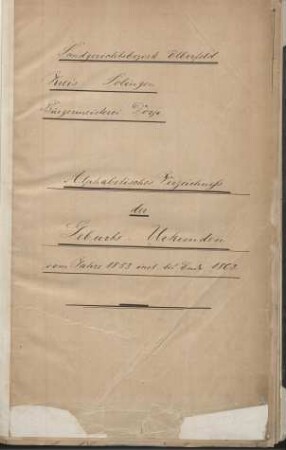 Landgerichtsbezirk Elberfeld
Kreis Solingen
Bürgermeisterei Dorp
Alphabetisches Verzeichniß
der
Geburts-Urkunden
vom Jahre 1853 incl. bis Ende 1862.